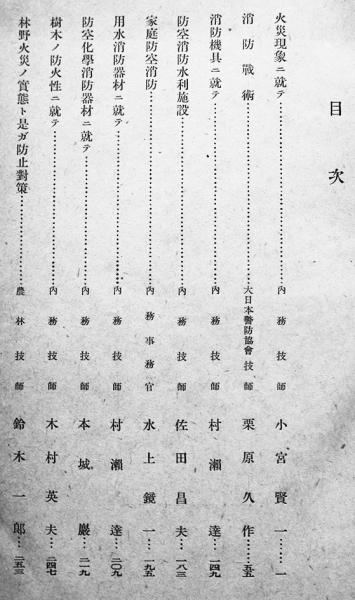 目次
火災現象ニ就テ……內務技師 小宮賢一……一
消防戰術……大日本警防協會技師 栗原久作……五五
消防機具ニ就テ……內務技師 村瀨達……一四九
防空消防水利施設……內務技師 佐田昌夫……一八三
家庭防空消防……內務事務官 水上鏡一……一九五
用水消防器材ニ就テ……內務技師 村瀨達……二〇九
防空化學消防器材ニ就テ……內務技師 本城巖……二一九
樹木ノ防火性ニ就テ……內務技師 木村英夫……二四七
林野火災ノ實態ト是ガ防止對策……農林技師 鈴木一郞……二五三